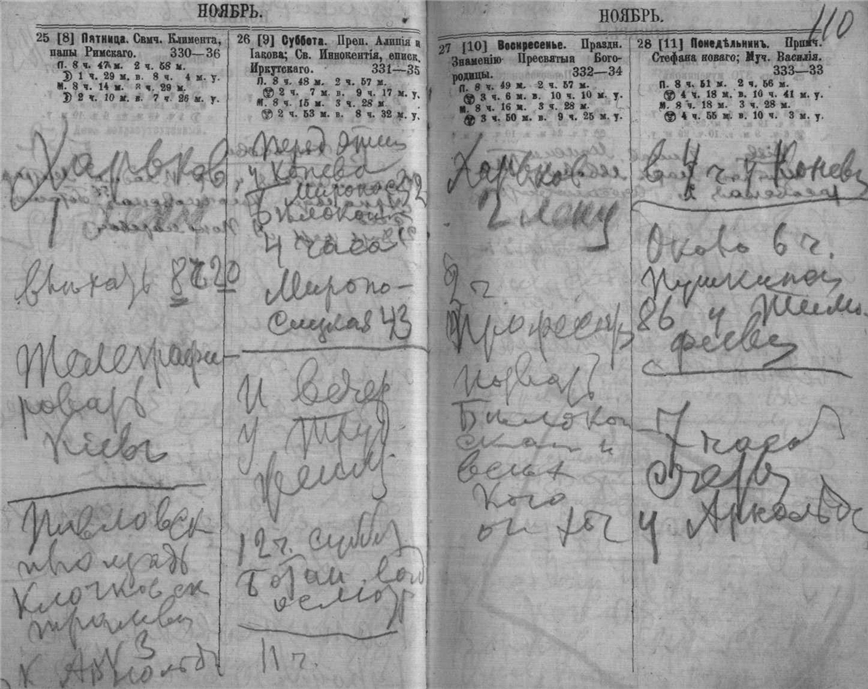 НОЯБРЬ.
25 [8] Пятница. Свмч. Климента,
папы Римскаго. 330—36
П. 8 ч. 47 м. 2 ч. 58 м.
1 ч. 29 м. в. 8 ч. 4 м. у.
М. 8 ч. 14 м. 3 ч. 29 м.
2 ч. 10 м. в. 7 ч. 26 м. у.
Харьков
выехать 8 ч 20
Телеграфи-
ровать
Кіевъ
Павловск
площадь
Клочковск
трамвай
3
к Аркольдъ
26 [9] Суббота. Преп. Алипія и
Іакова; Св. Иннокентія, еписк.
Иркутскаго. 331—35
П. 8 ч. 48 м. 2 ч. 57 м.
2 ч. 7 м. в. 9 ч. 17 м. у.
М. 8 ч. 15 м. 3 ч. 28 м.
2 ч. 53 м. в. 8 ч. 32 м. у.
Перед этим
у Конева
4 часа
Мироно-
сицкая 43
и вечер
у
12 ч. субб
Ботан. сад
осмотр
11 ч.
НОЯБРЬ.
110
27 [10] Воскресенье. Праздн.
Знаменію Пресвятыя Бого-
родицы. 332—34
П. 8 ч. 49 м. 2 ч. 57 м.
3 ч. 6 м. в. 10 ч. 10 м. у.
М. 8 ч. 16 м. 3 ч. 28 м.
3 ч. 50 м. в. 9 ч. 25 м. у.
Харьков
2 лекц
2 ч
Професор
позвать
Билокон
и
всех
Кого
он хоч
28 [11] Понедѣльникъ. Прмч.
Стефана новаго; Муч. Василія.
333—33
П. 8 ч. 51 м. 2 ч. 56 м.
4 ч. 18 м. в. 10 ч. 41 м. у.
М. 8 ч. 18 м. 3 ч. 28 м.
4 ч. 55 м. в. 10 ч. 3 м. у.
в 4 ч у Конев
Около 6 ч.
Пушкинск
86 у Тимо-
феева
7 часов
у Аркольдъ